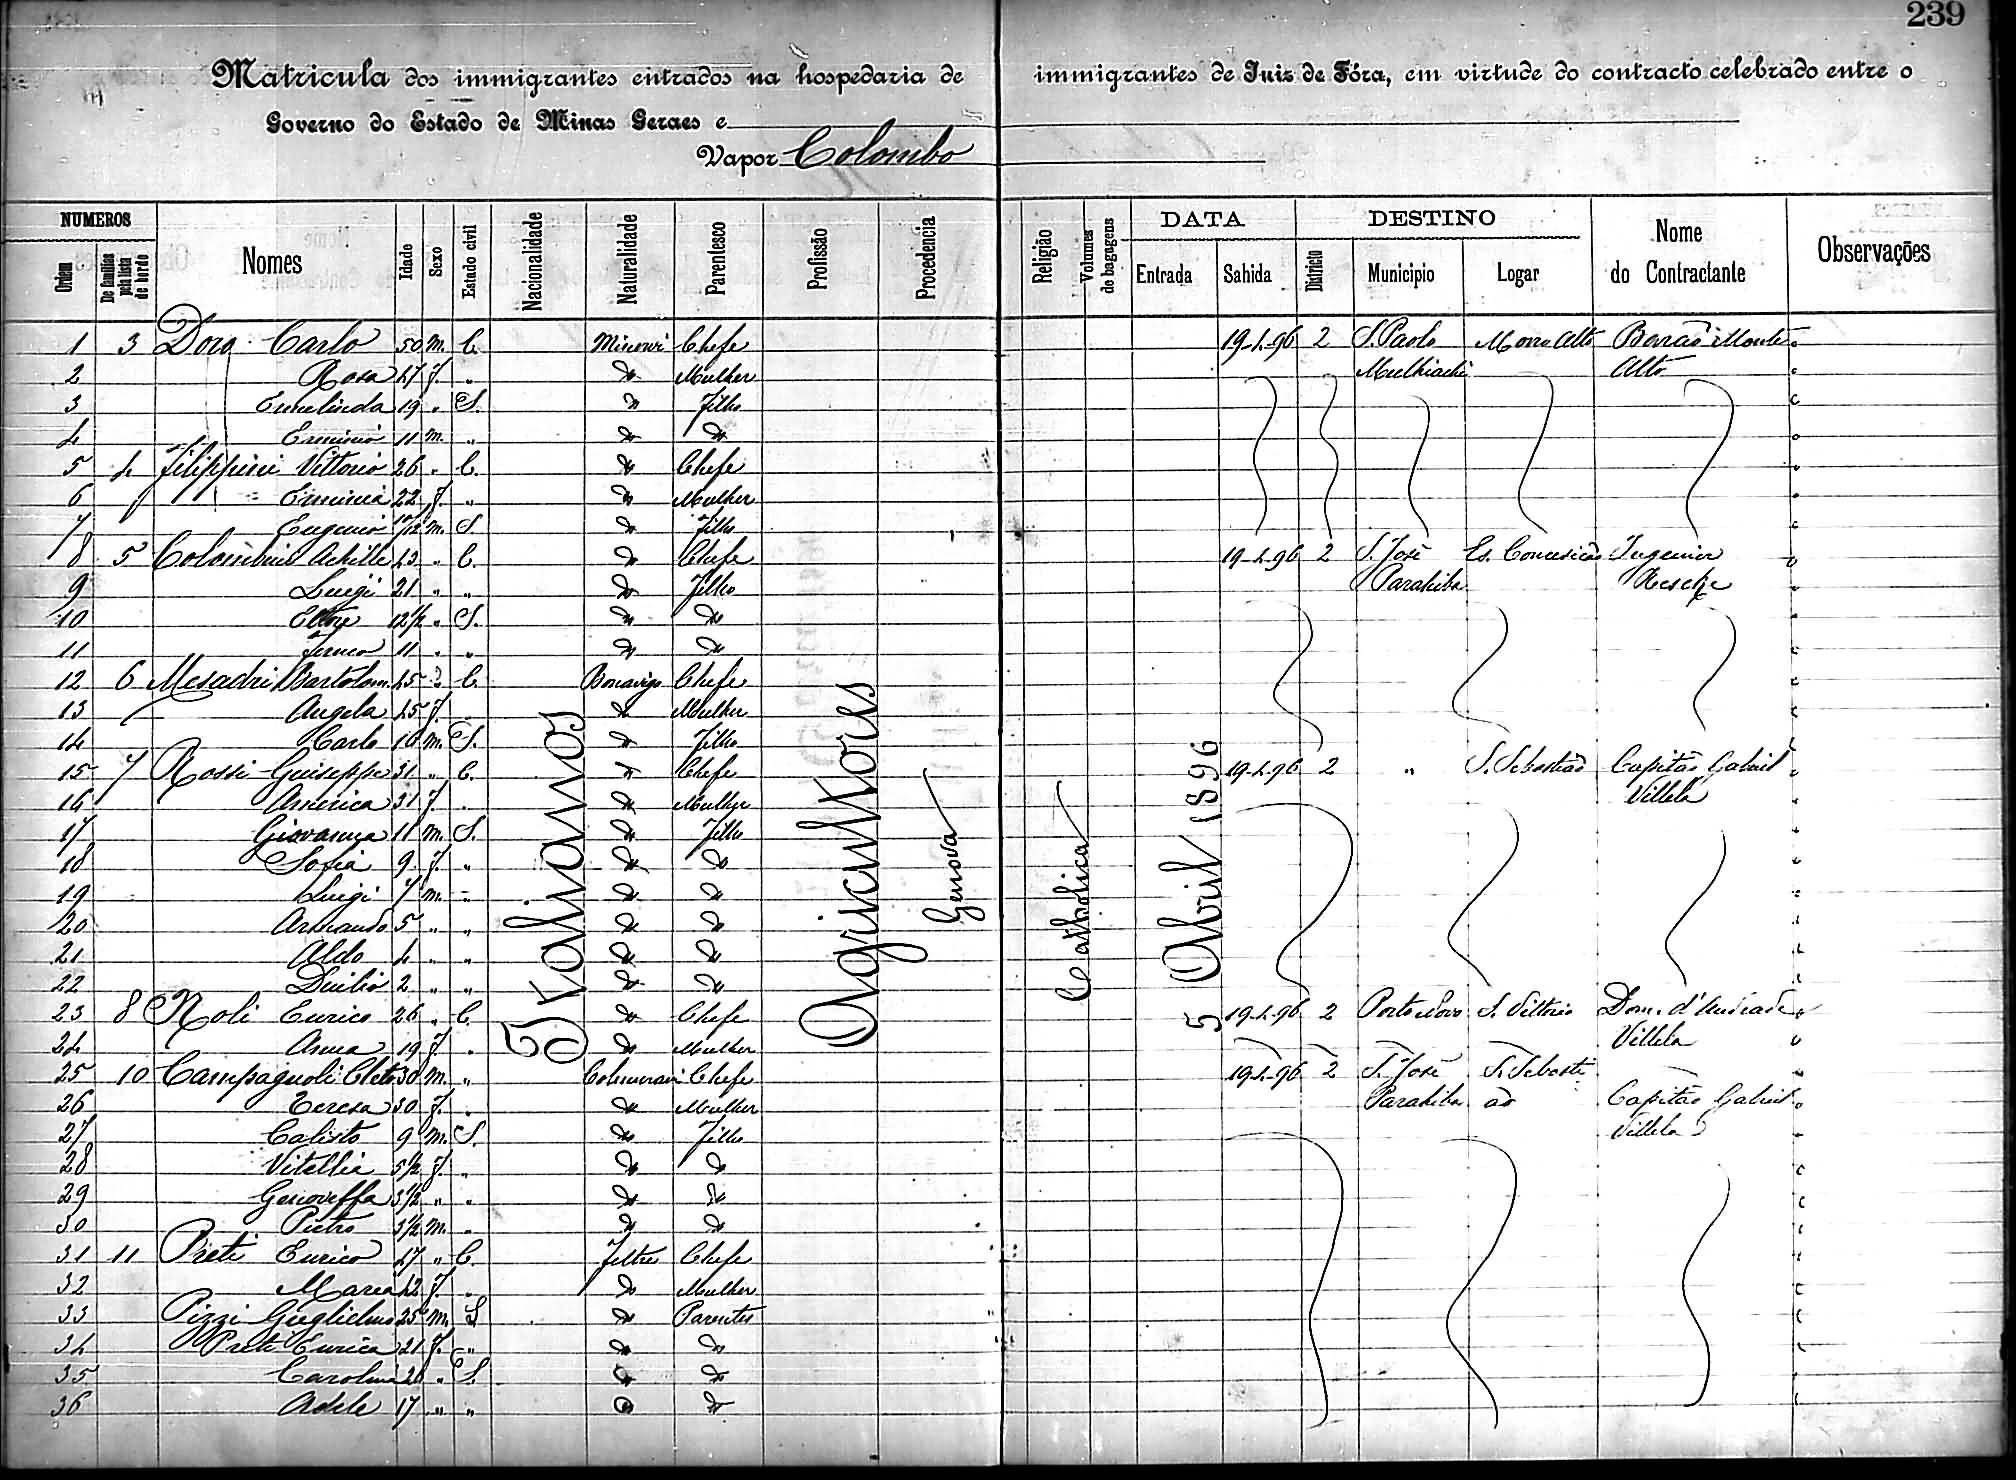 239
Matricula dos immigrantes entrados na hospedaria de immigrantes de Juiz de Fóra, em virtude do contracto celebrado entre o
Governo do Estado de Minas Geraes e
Vapor Colombo
NUMEROS
Ordem
De familias pela lista de bordo
Nomes
Idade
Sexo
Estado civil
Nacionalidade
Naturalidade
Parentesco
Profissão
Procedencia
Religião
Volumes de bagagens
DATA
Entrada
Sahida
DESTINO
Districto
Municipio
Logar
Nome do Contractante
Observações
Italianos
Agricultores
Genova
Catholica
5 Abril 1896
1 3 Doro Carlo 50 m. C. Chefe 19-4-96 2 S. Paolo Morro Alto Barão Monte
2 Rosa 47 f. " Do Mulher Alto
3 Ermelinda 19 " S. Do Filho
4 Erminio 11 m. " Do Do
5 4 Filippini Vittorio 26 " C. Do Chefe
6 Erminia 22 f. " Do Mulher
7 Eugenio 10/12 m. S. Do Filho
8 5 Colombini Achille 43 " C. Do Chefe 19-4-96 2 S. José Es. Conceicão
9 Luigi 21 " " Do Filho Parahiba
10 Ettore 12 1/2 " S. Do Do
11 11 " " Do Do
12 6 Mesadri Bartolom. 45 " C. Bonavigo Chefe
13 Angela 45 f. Do Mulher
14 Carlo 10 m. S. Do Filho
15 7 Rossi Guiseppe 31 " C. Do Chefe 19-4-96 2 " S. Sebastião Capitão Gabriel
16 America 31 f. " Do Mulher Villela
17 Giovanna 11 m. S. Do Filho
18 Sofia 9 f. " Do Do
19 Luigi 7 m. " Do Do
20 Armando 5 " " Do Do
21 Aldo 4 " " Do Do
22 Duilio 2 " " Do Do
23 8 Noli Enrico 26 " C. Do Chefe 19-4-96 2 Porto Novo S. Vittorio Dom. d'Andrade
24 Anna 19 f. " Do Mulher Villela
25 10 Campagnoli Cleto 30 m. " Chefe 19-4-96 2 S. José S. Sebasti
26 Teresa 30 f. " Do Mulher Parahiba ão Capitão Gabriel
27 Calisto 9 m. S. Do Filho Villela
28 Vitellia 5 1/2 f. " Do Do
29 Genoveffa 3 1/2 " " Do Do
30 Pietro 3 1/2 m. " Do Do
31 11 Preti Enrico 47 " C. Feltre Chefe
32 Maria 42 f. " Do Mulher
33 Pizzi Guglielmo 25 m. S. Do Parentes
34 Preti Enrica 21 f. " Do Do
35 Carolina 20 " S. Do Do
36 Adele 17 " " Do Do